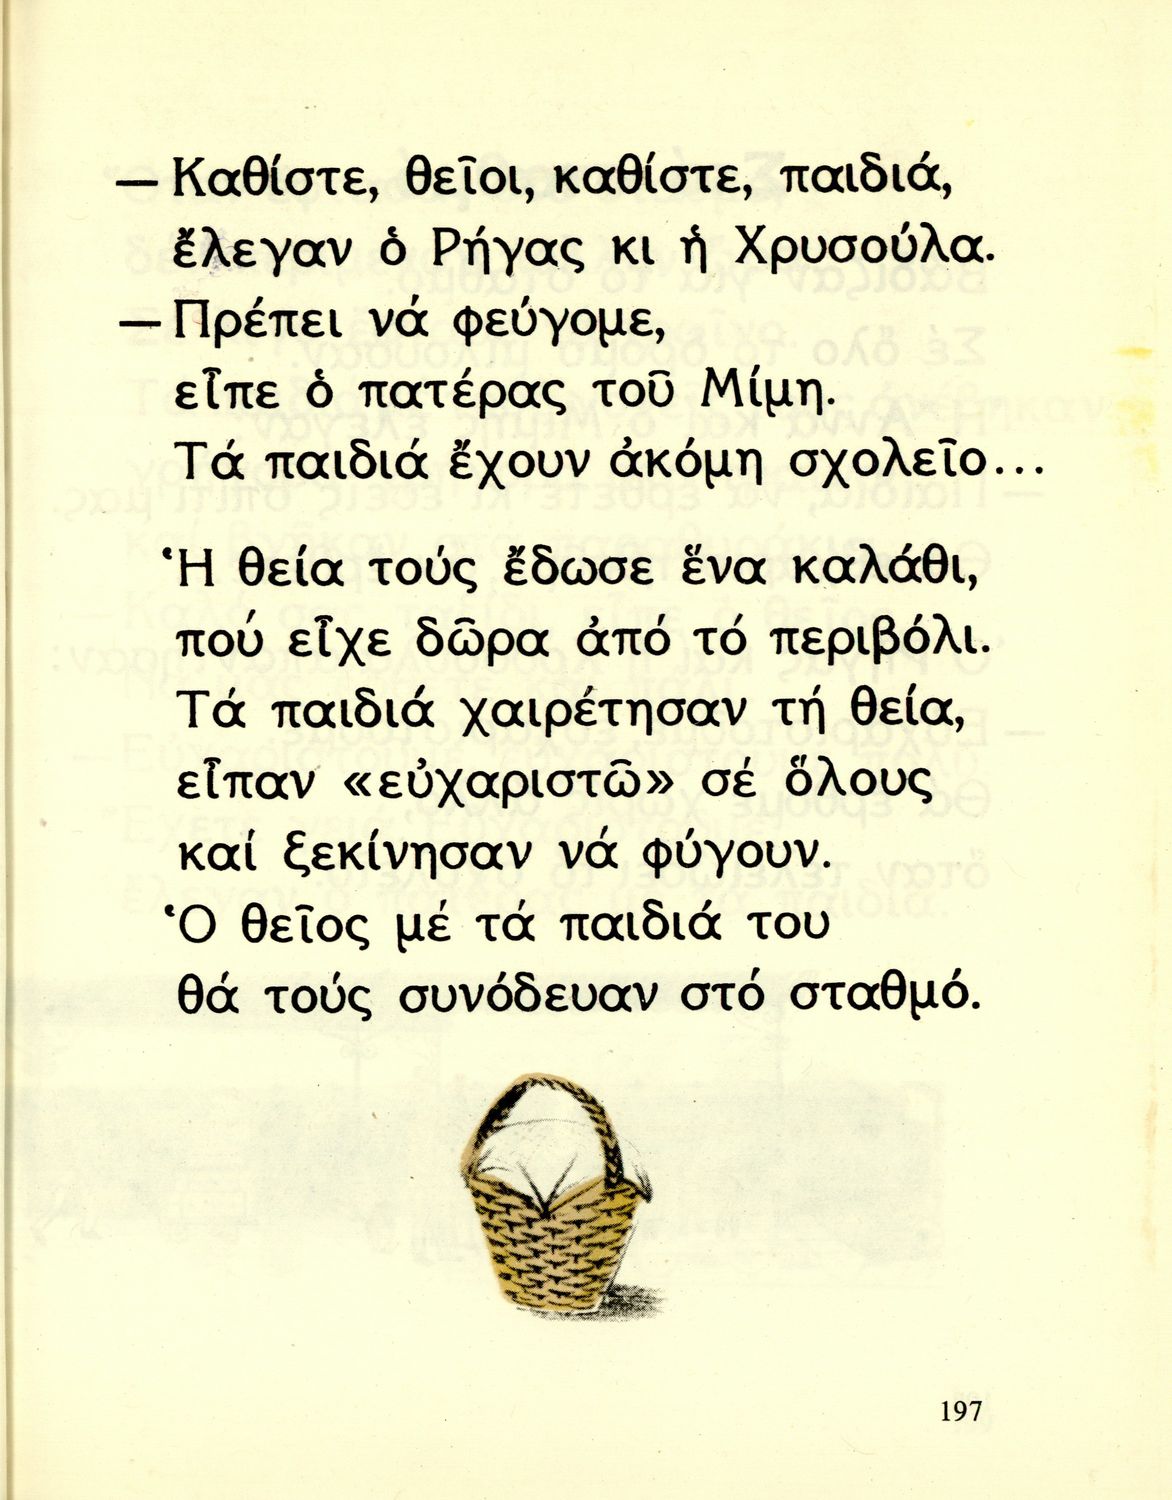 — Καθίστε, θεῖοι, καθίστε, παιδιά,
ἔλεγαν ὁ Ρήγας κι ἡ Χρυσούλα.
— Πρέπει νά φεύγομε,
εἶπε ὁ πατέρας τοῦ Μίμη.
Τά παιδιά ἔχουν ἀκόμη σχολεῖο...
Ἡ θεία τούς ἔδωσε ἕνα καλάθι,
πού εἶχε δῶρα ἀπό τό περιβόλι.
Τά παιδιά χαιρέτησαν τή θεία,
εἶπαν «εὐχαριστῶ» σέ ὅλους
καί ξεκίνησαν νά φύγουν.
Ὁ θεῖος μέ τά παιδιά του
θά τούς συνόδευαν στό σταθμό.
197